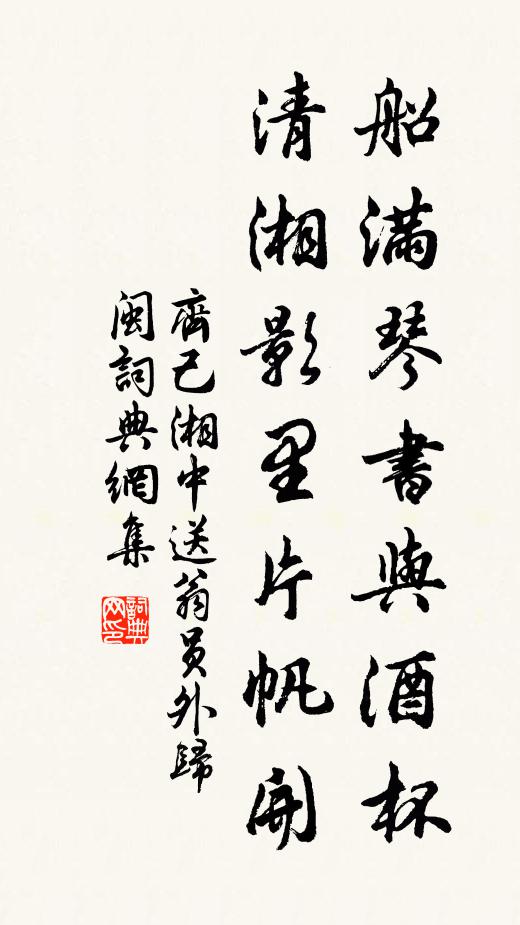 船滿琴書與酒杯
清湘影里片帆開
齊己湘中送翁員外歸
閩詞典網集
詞典
网印